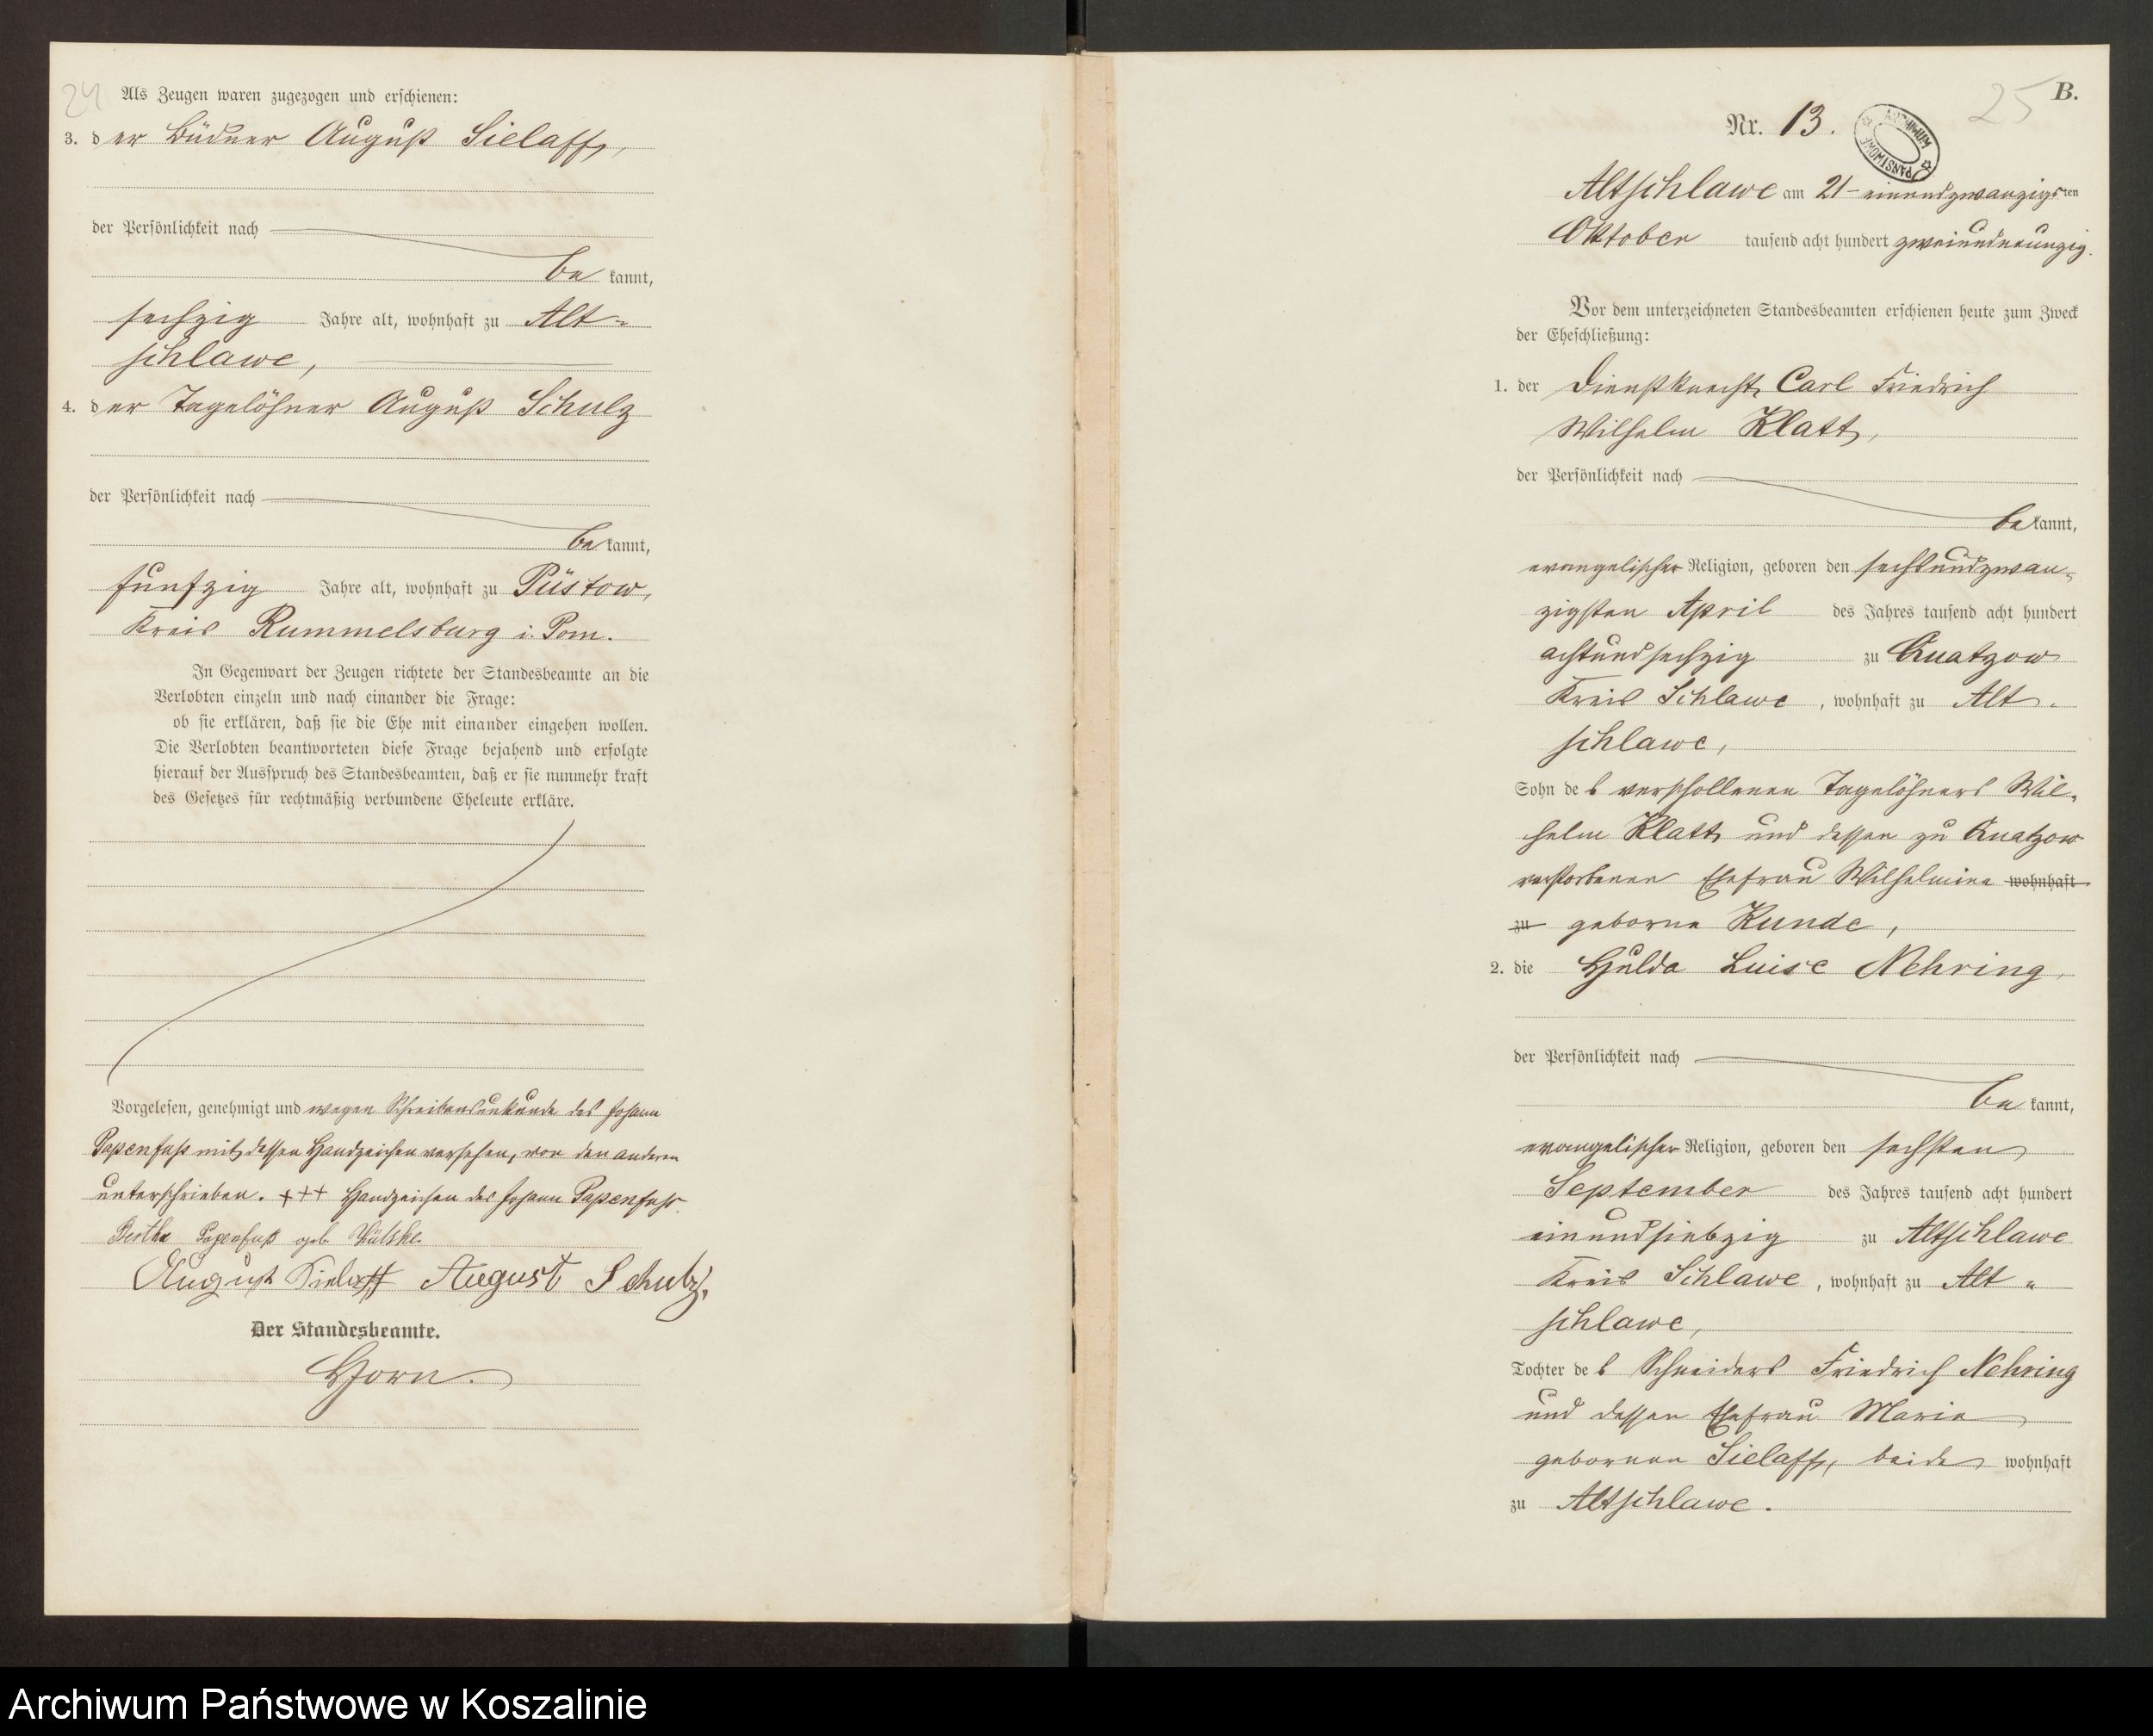 24
Als Zeugen waren zugezogen und erschienen:
3. der Büdner August Sielaff,
der Persönlichkeit nach
bekannt,
sechzig Jahre alt, wohnhaft zu Alt-
schlawe,
4. der Tagelöhner August Schulz
der Persönlichkeit nach
bekannt,
fünfzig Jahre alt, wohnhaft zu Püstow,
Kreis Rummelsburg i. Pom.
In Gegenwart der Zeugen richtete der Standesbeamte an die
Verlobten einzeln und nach einander die Frage:
ob sie erklären, daß sie die Ehe mit einander eingehen wollen.
Die Verlobten beantworteten diese Frage bejahend und erfolgte
hierauf der Ausspruch des Standesbeamten, daß er sie nunmehr kraft
des Gesetzes für rechtmäßig verbundene Eheleute erkläre.
Vorgelesen, genehmigt und wegen Schreibensunkunde des Johann
Papenfuß mit dessen Handzeichen versehen, von den anderen
unterschrieben. +++ Handzeichen des Johann Papenfuß.
Bertha Papenfuß geb.
August Sielaff August Schulz,
Der Standesbeamte.
Horn.
25
B.
Nr. 13.
ARCHIWUM PAŃSTWOWE
Altschlawe am 21 - einundzwanzigsten
Oktober tausend acht hundert zweiundneunzig.
Vor dem unterzeichneten Standesbeamten erschienen heute zum Zweck
der Eheschließung:
1. der Dienstknecht Carl Friedrich
Wilhelm Klatt,
der Persönlichkeit nach
bekannt,
evangelischer Religion, geboren den sechsundzwan-
zigsten April des Jahres tausend acht hundert
achtundsechzig zu Quatzow
Kreis Schlawe, wohnhaft zu Alt-
schlawe,
Sohn des verschollenen Tagelöhners Wil-
helm Klatt und dessen zu Quatzow
verstorbenen Ehefrau Wilhelmine wohnhaft
zu geborne Kunde,
2. die Hulda Luise Nehring,
der Persönlichkeit nach
bekannt,
evangelischer Religion, geboren den sechsten
September des Jahres tausend acht hundert
einundsiebzig zu Altschlawe
Kreis Schlawe, wohnhaft zu Alt-
schlawe,
Tochter des Schneiders Friedrich Nehring
und dessen Ehefrau Marie
gebornen Sielaff, beide wohnhaft
zu Altschlawe.
Archiwum Państwowe w Koszalinie